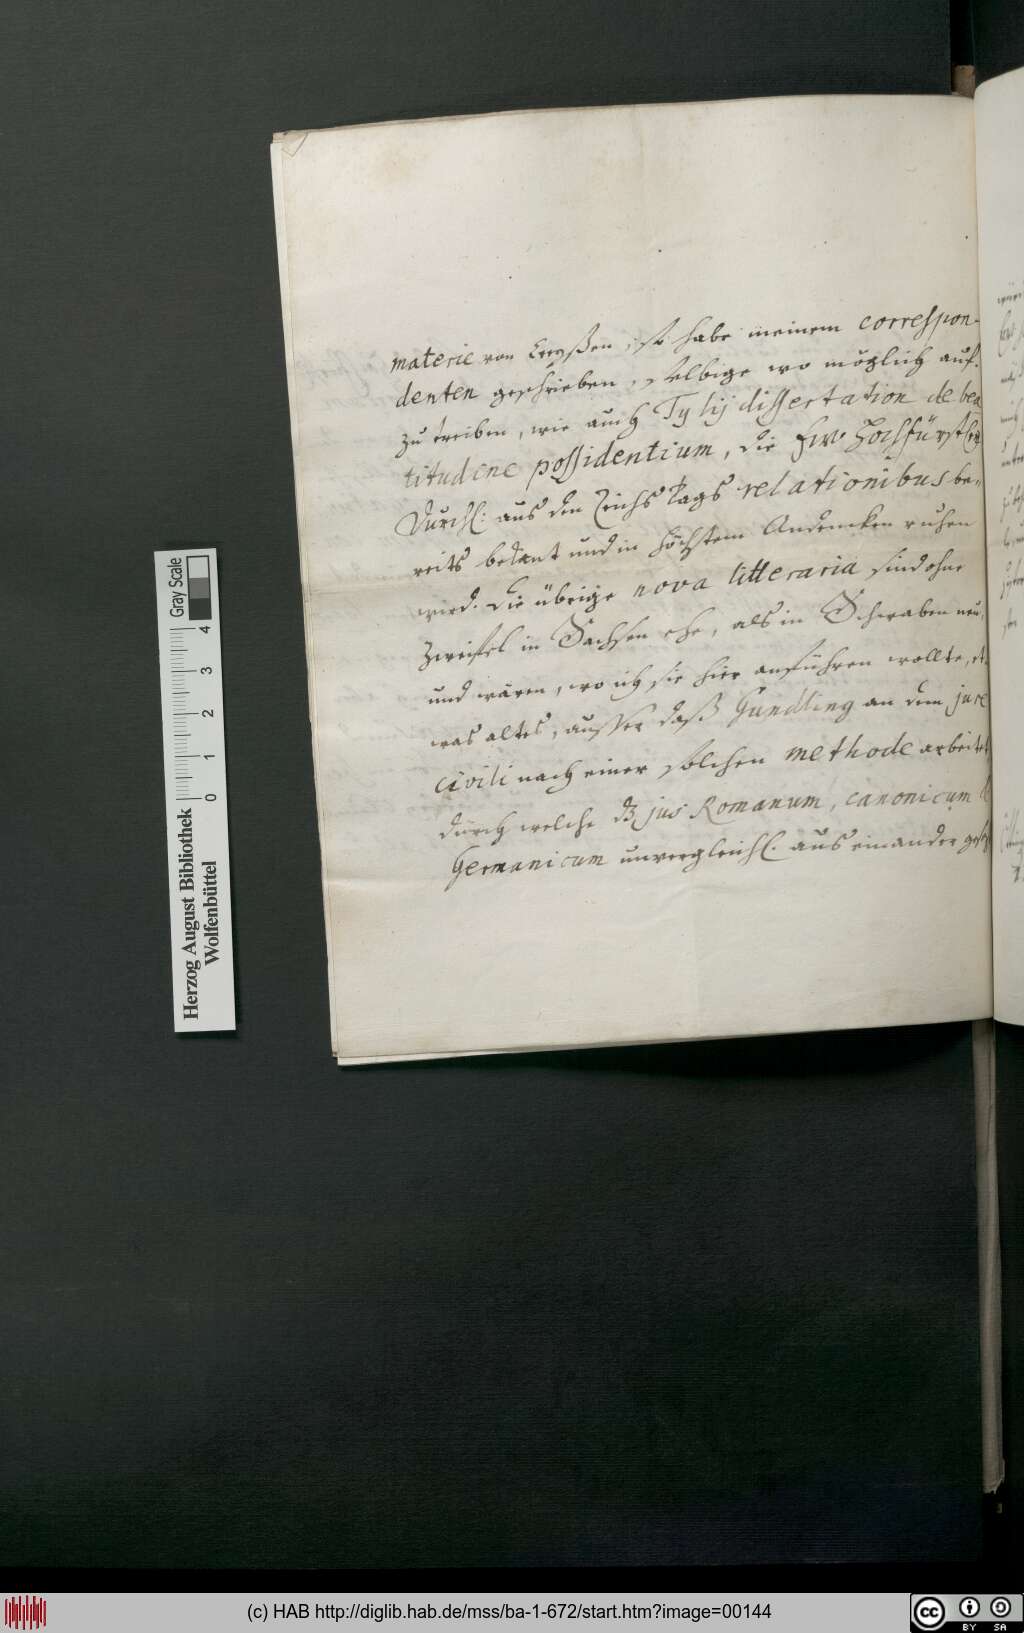 materie von , so habe meinem correspon-
denten geschrieben, selbige wo möglich auf-
zu treiben, wie auch Tylij dissertation de bea
titudine possidentium, die Ew. Hochfürstl:
Durchl: aus den Reichs Tags relationibus be-
reits bekant und in höchstem Andencken ruhen
wird. Die übrige nova litteraria sind ohne
Zweiffel in Sachsen ehe, als in Schwaben neu,
und wären, wo ich sie hier anführen wollte, et-
was altes, ausser daß Gundling an dem jure
civili nach einer solchen methode arbeitet
durch welche dz jus Romanum, canonicum &
Germanicum unvergleichl. aus einander gesetz
Herzog August Bibliothek
Wolfenbüttel
Gray Scale
0 1 2 3 4
(c) HAB http://diglib.hab.de/mss/ba-1-672/start.htm?image=00144
cc BY SA